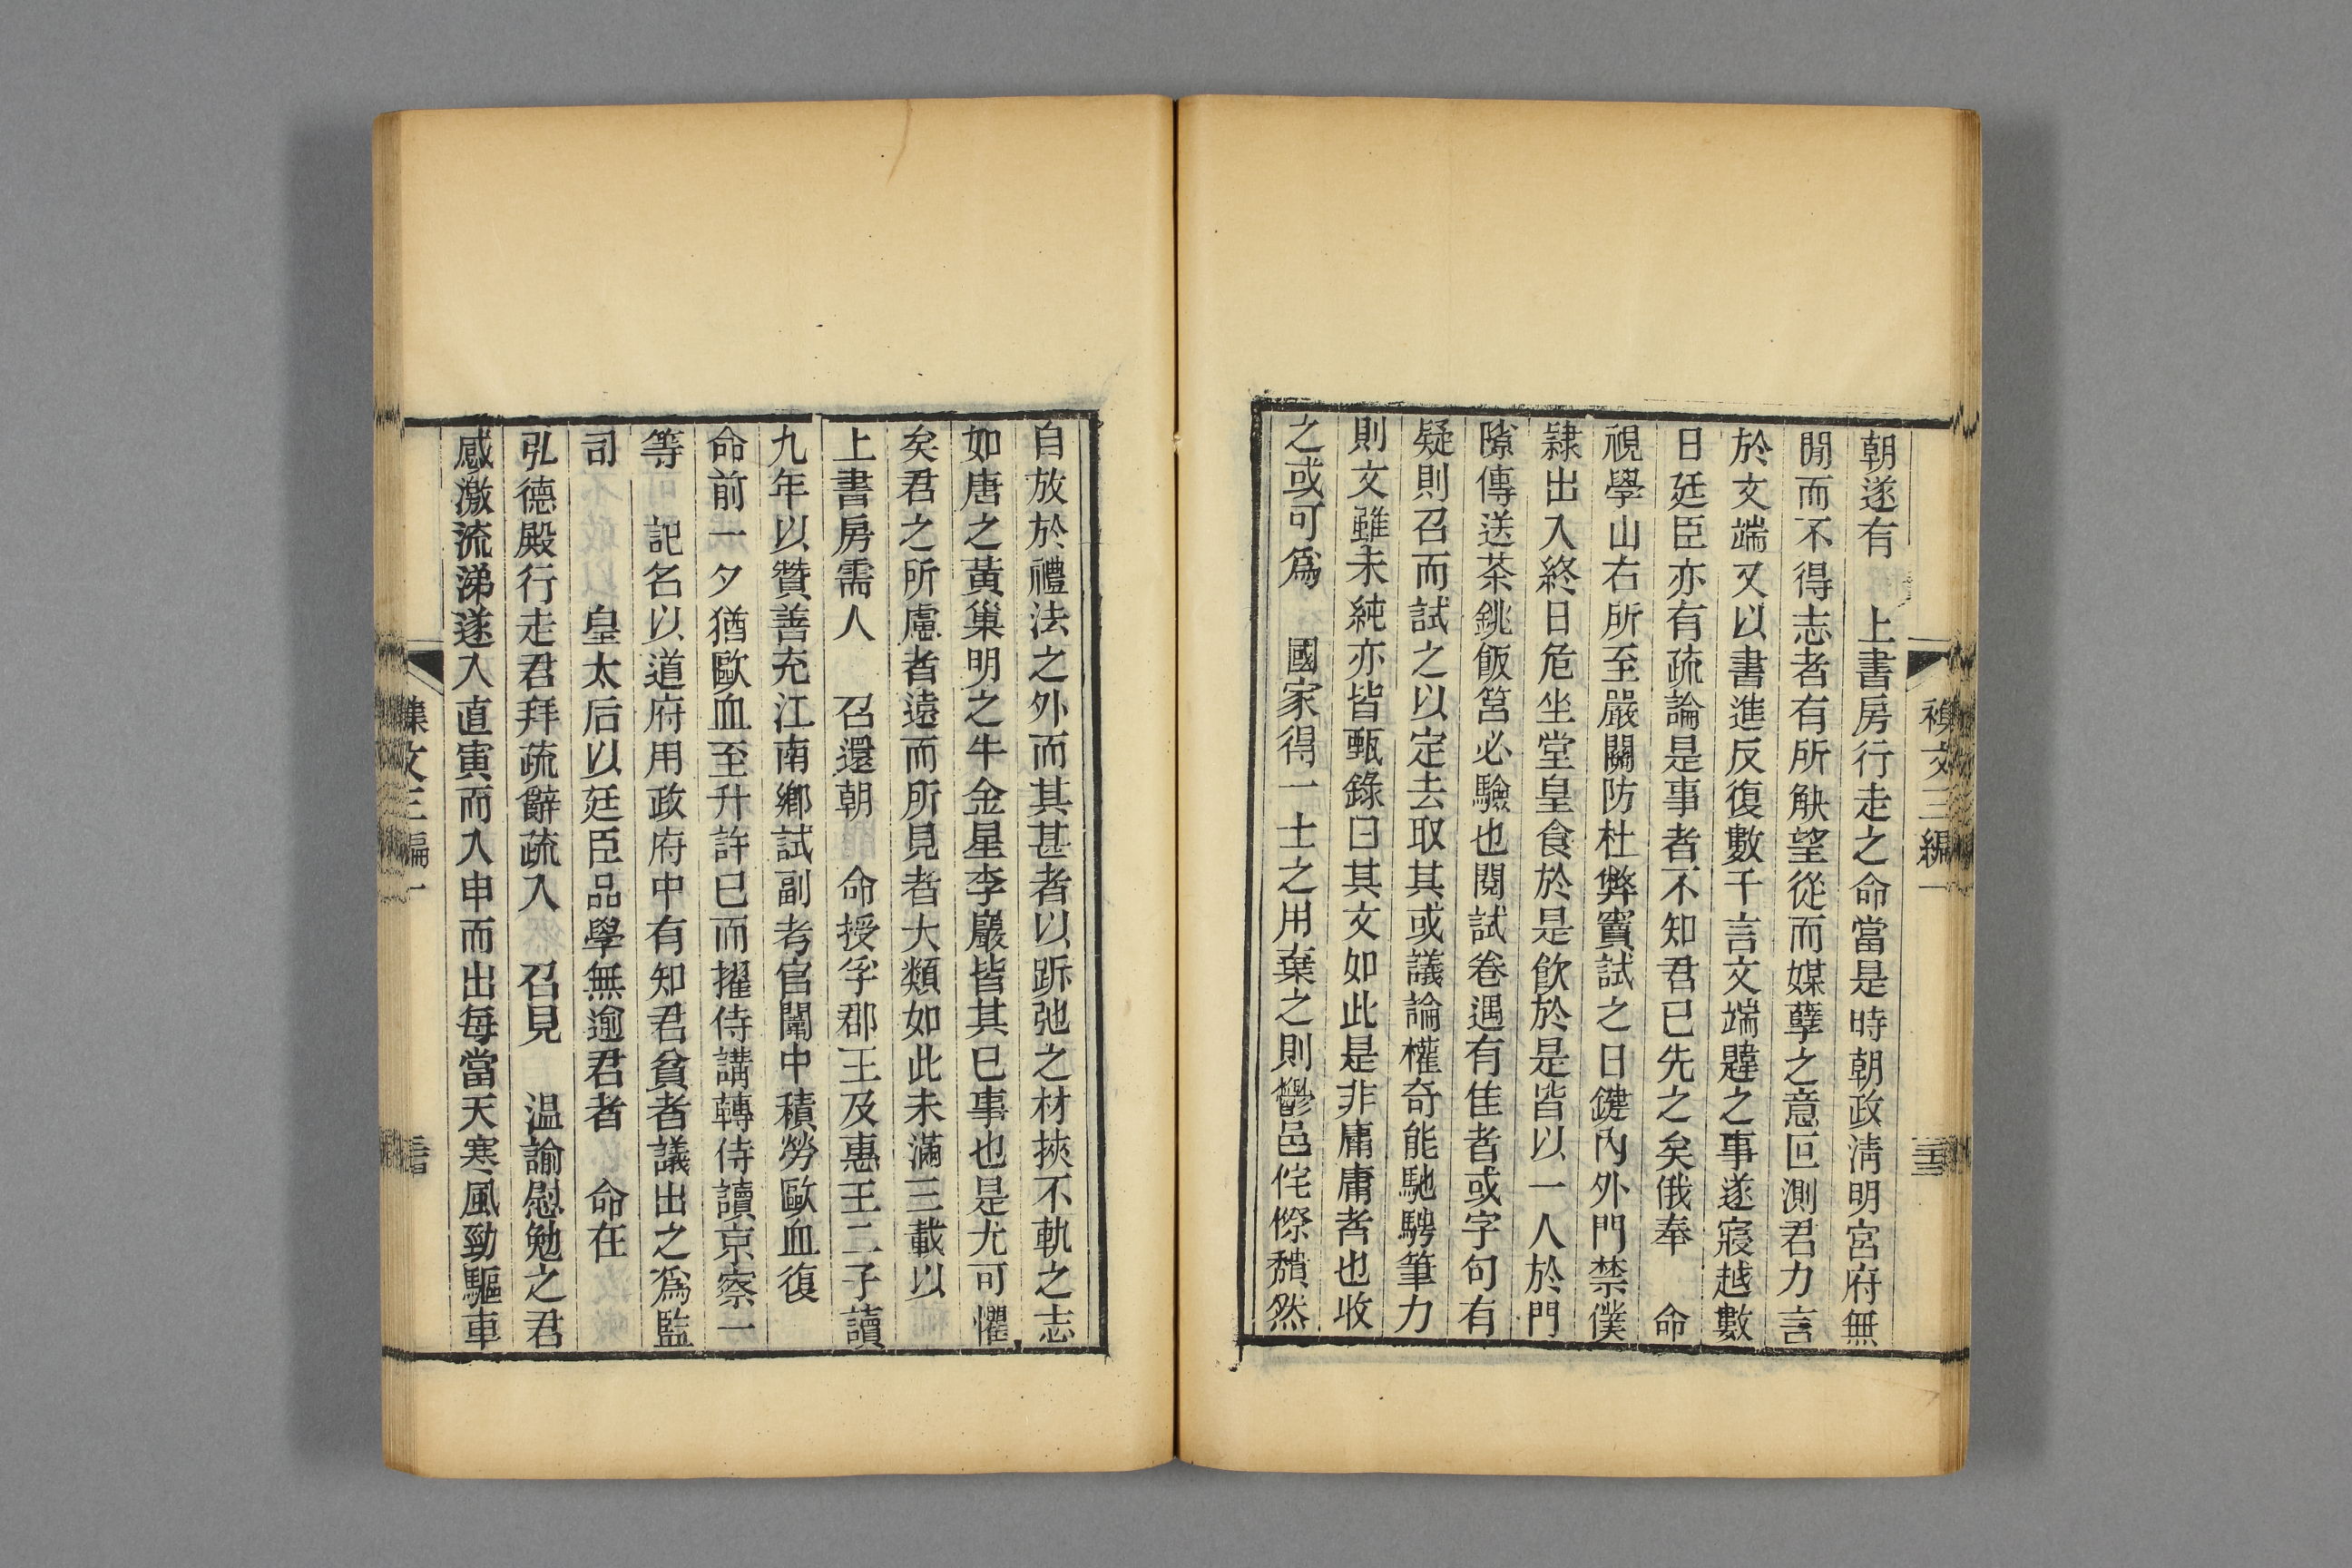 襍文三編一
朝遂有　上書房行走之命當是時朝政淸明宮府無
閒而不得志者有所觖望從而媒孽之意叵測君力言
於文端又以書進反復數千言文端韙之事遂寢越數
日廷臣亦有疏論是事者不知君已先之矣俄奉　命
視學山右所至嚴關防杜弊竇試之日鍵內外門禁僕
隸出入終日危坐堂皇食於是飲於是皆以一人於門
隙傳送茶銚飯筥必驗也閱試卷遇有佳者或字句有
疑則召而試之以定去取其或議論權奇能馳騁筆力
則文雖未純亦皆甄錄曰其文如此是非庸庸者也收
之或可爲　國家得一士之用棄之則鬱邑侘傺穨然
自放於禮法之外而其甚者以跅弛之材挾不軌之志
如唐之黃巢明之牛金星李巖皆其已事也是尤可懼
矣君之所慮者遠而所見者大類如此未滿三載以
上書房需人　召還朝　命授孚郡王及惠王二子讀
九年以贊善充江南鄉試副考官闈中積勞歐血復
命前一夕猶歐血至升許已而擢侍講轉侍讀京察一
等　記名以道府用政府中有知君貧者議出之爲監
司　　皇太后以廷臣品學無逾君者　命在
弘德殿行走君拜疏辭疏入　召見　温諭慰勉之君
感激流涕遂入直寅而入申而出每當天寒風勁驅車
襍文三編一